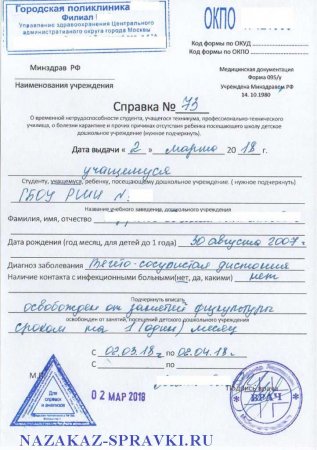 Городская поликлиника
Филиал
Управление здравоохранения Центрального
административного округа города Москвы
ОКПО
Код формы по ОКУД
Код формы по ОКПО
Минздрав РФ
Медицинская документация
Форма 095/у
Наименования учреждения
Учреждена Минздравом РФ
14.10.1980
Справка № 73
О временной нетрудоспособности студента, учащегося техникума, профессионально-технического
училища, о болезни карантине и прочих причинах отсутствия ребенка посещающего школу детское
дошкольное учреждение (нужное подчеркнуть).
Дата выдачи « 2 » марта 2018 г.
учащемуся
Студенту, учащемуся, ребенку, посещающему дошкольное учреждение. ( нужное подчеркнуть)
ГБОУ
Название учебного заведения, дошкольного учреждения
Фамилия, имя, отчество
Дата рождения (год месяц, для детей до 1 года) 30 августа 2007 г
Диагноз заболевания Вегето-сосудистая дистония
Наличие контакта с инфекционными больными(нет, да, какими) нет
Подчеркнуть вписать
освобожден от занятий физкультуры
освобожден от занятий, посещений детского дошкольного учреждения
сроком на 1 (один) месяц
С 02.03.18 г по 02.04.18 г.
С по
М.П.
Для справок и анализов
02 МАР 2018
Подпись врача
ВРАЧ
NAZAKAZ-SPRAVKI.RU